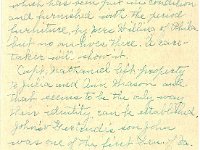 which has been put in condition
and furnished with the period
furniture by Mrs Willing of Phila
but no one lives there. A care-
taker will show it.
Capt. Nathaniel left property
to Julia and Ann Mason and
that seems to be the only way
their identity can be established
John's and his son John
was one of the first Gen. of Pa.